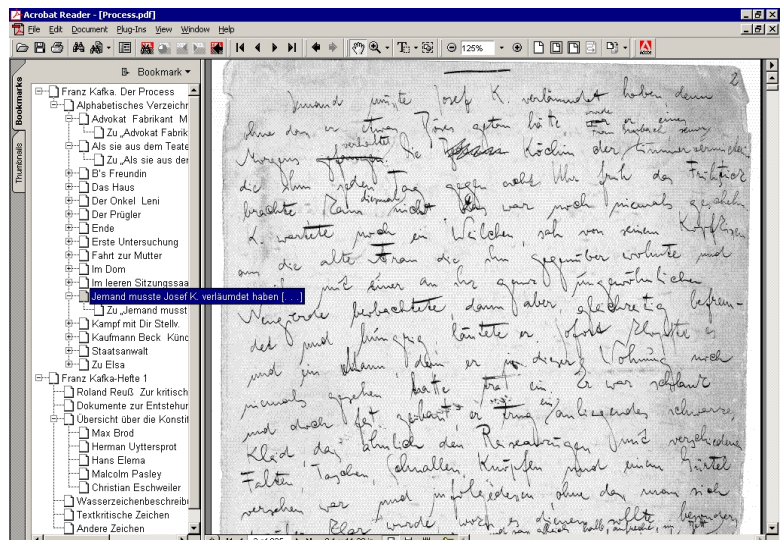 Acrobat Reader - [Process.pdf]
File Edit Document Plug-Ins View Window Help
125%
Bookmark
Bookmarks
Thumbnails
Franz Kafka. Der Process
Alphabetisches Verzeichn
Advokat Fabrikant M
Zu „Advokat Fabrik
Als sie aus dem Teate
Zu „Als sie aus der
B's Freundin
Das Haus
Der Onkel Leni
Der Prügler
Ende
Erste Untersuchung
Fahrt zur Mutter
Im Dom
Im leeren Sitzungssaa
Jemand musste Josef K. verläumdet haben [. . .]
Zu „Jemand musst
Kampf mit Dir Stellv.
Kaufmann Beck Künd
Staatsanwalt
Zu Elsa
Franz Kafka-Hefte 1
Roland Reuß Zur kritisch
Dokumente zur Entstehur
Übersicht über die Konstit
Max Brod
Herman Uyttersprot
Hans Elema
Malcolm Pasley
Christian Eschweiler
Wasserzeichenbeschreibu
Textkritische Zeichen
Andere Zeichen
2
Jemand musste Josef K. verläumdet haben denn
ohne dass er etwas Böses getan hätte er eines
Morgens verhaftet. Die Köchin der Zimmervermieterin
die ihm jeden Tag gegen acht Uhr früh das Frühstück
brachte kam diesmal nicht. Das war noch niemals geschehn
K. wartete noch ein Weilchen, sah von seinem Kopfkissen
aus die alte Frau die ihm gegenüber wohnte und
die ihn mit einer an ihr ganz ungewöhnlichen
Neugierde beobachtete, dann aber, gleichzeitig befrem-
det und hungrig, läutete er. Sofort klopfte es
und ein Mann, den er in dieser Wohnung noch
niemals gesehen hatte trat ein. Er war schlank
und doch fest gebaut, er trug ein anliegendes schwarzes
Kleid, das ähnlich den Reiseanzügen mit verschiedenen
Falten, Taschen, Schnallen, Knöpfen und einem Gürtel
versehen war und infolgedessen, ohne dass man sich
darüber klar wurde, wozu es dienen sollte, besonders